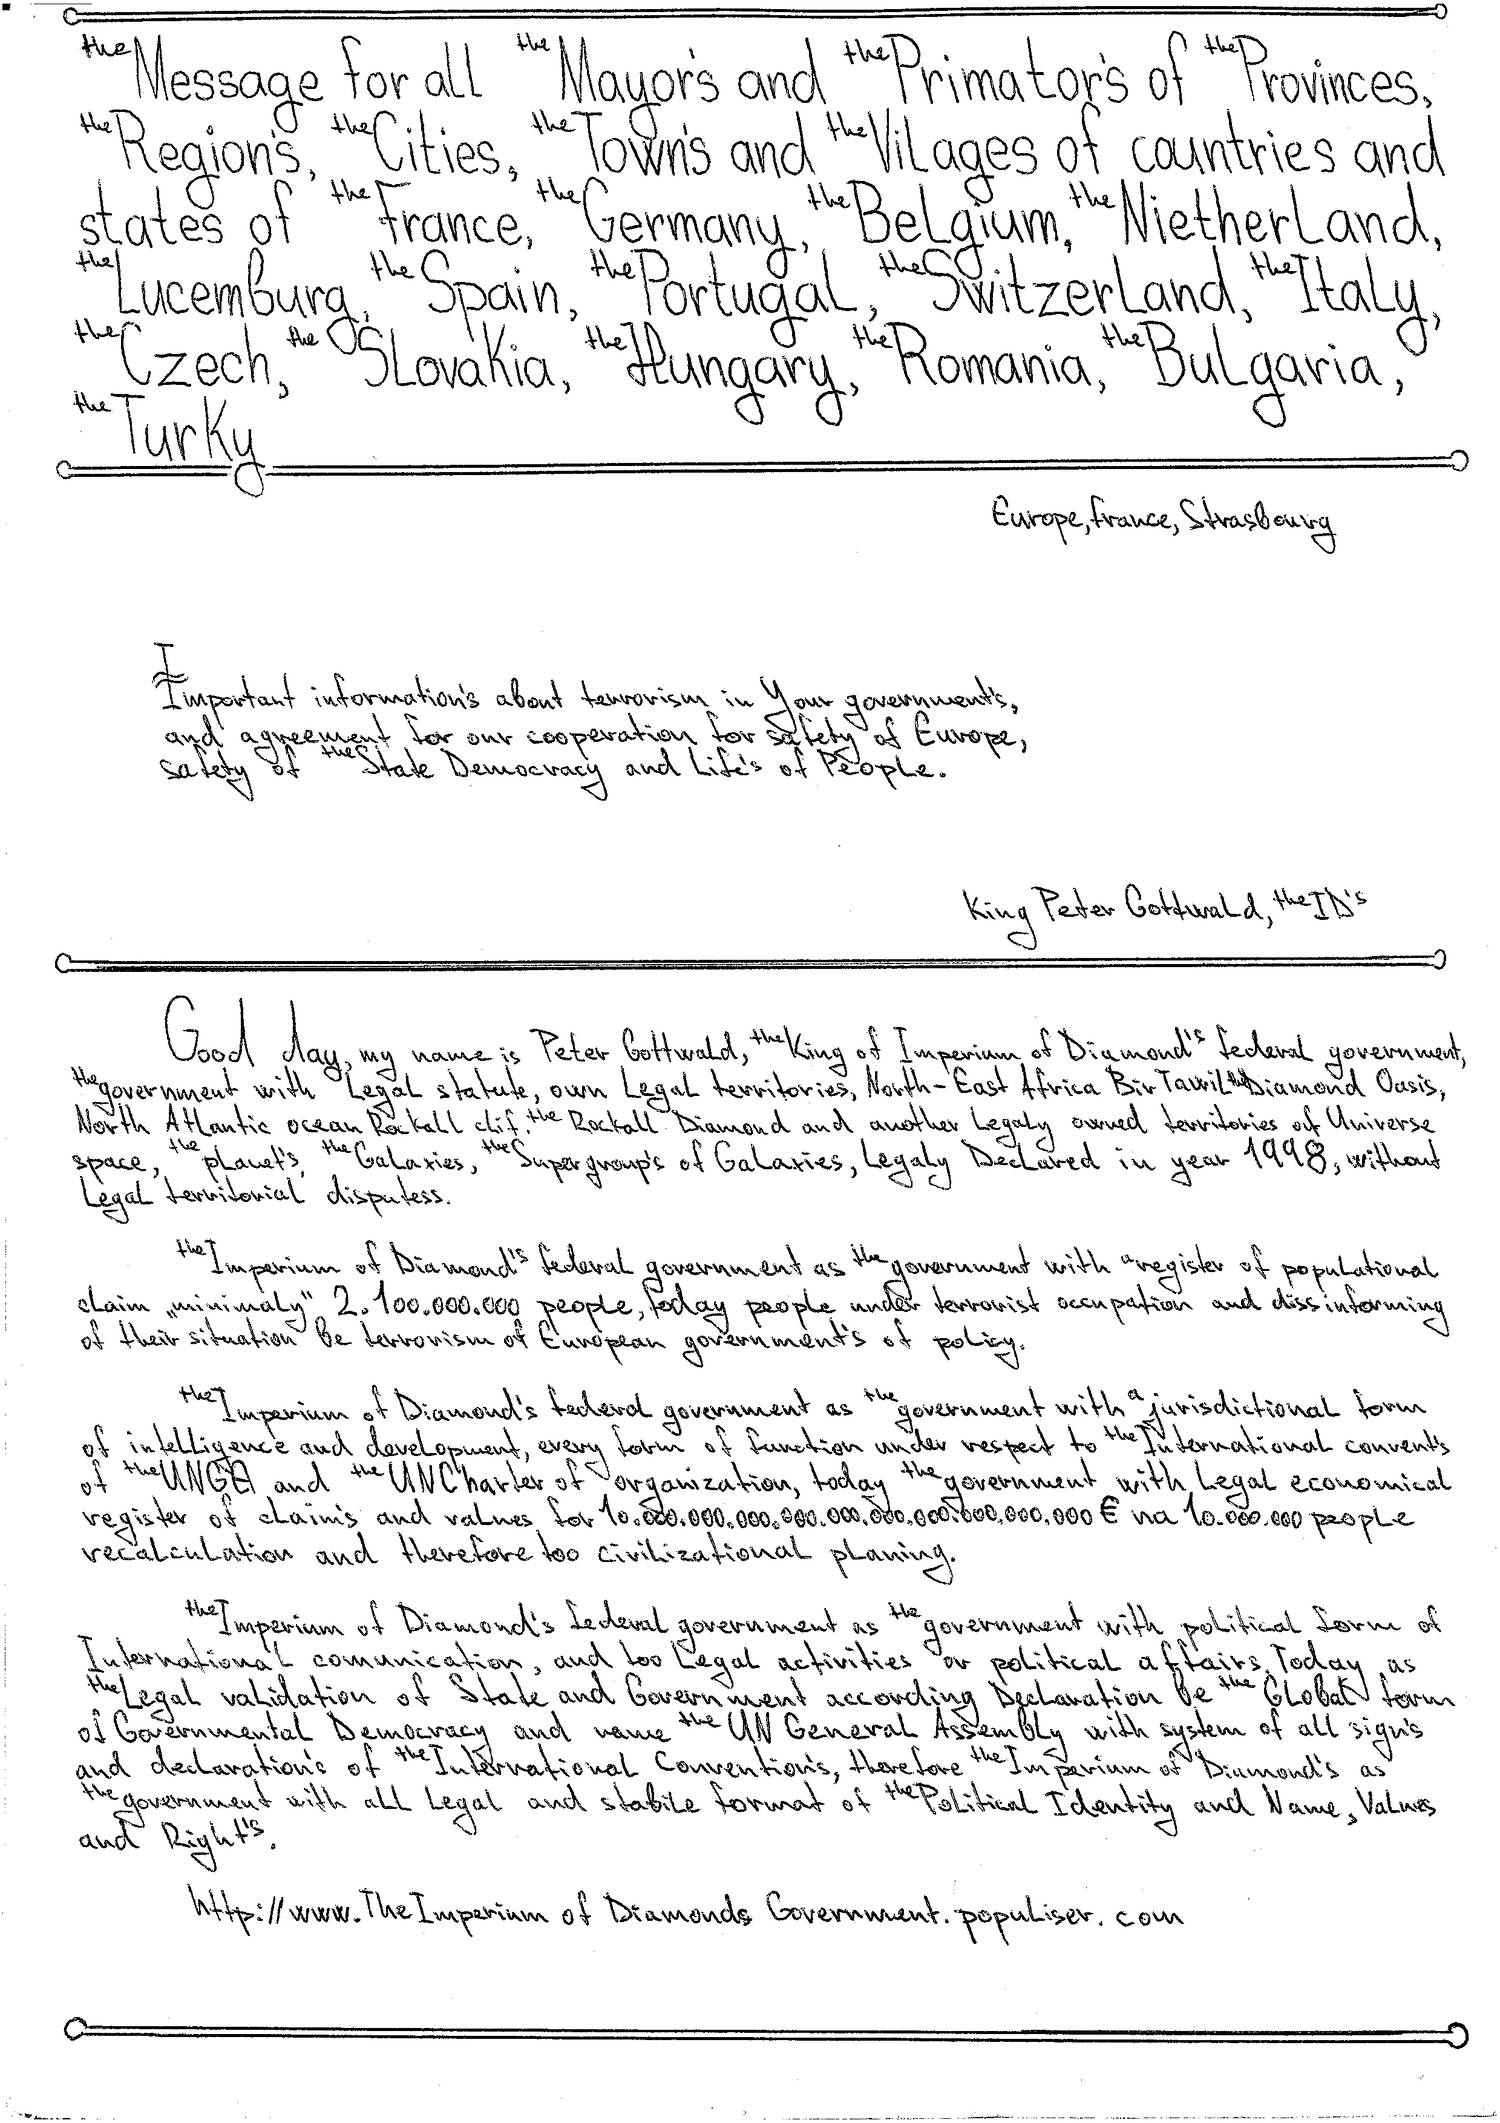 the Message for all the Mayor's and the Primator's of the Provinces,
the Region's, the Cities, the Town's and the Vilages of countries and
states of the France, the Germany, the Belgium, the Nietherland,
the Lucemburg, the Spain, the Portugal, the Switzerland, the Italy,
the Czech, the Slovakia, the Hungary, the Romania, the Bulgaria,
the Turky
Europe, France, Strasbourg
I
Important information's about terrorism in Your government's,
and agreement for our cooperation for safety of Europe,
safety of the State Democracy and Life's of People.
King Peter Gottwald, the ID's
Good day, my name is Peter Gottwald, the King of Imperium of Diamond's federal government,
the government with Legal statute, own Legal territories, North-East Africa Bir Tawil the Diamond Oasis,
North Atlantic ocean Rockall clif. the Rockall Diamond and another Legaly owned territories of Universe
space, the planet's, the Galaxies, the Supergroup's of Galaxies, Legaly Declared in year 1998, without
Legal territorial disputess.
the Imperium of Diamond's federal government as the government with a register of populational
claim „minimaly" 2.100.000.000 people, today people under terrorist occupation and dissinforming
of their situation be terrorism of European government's of policy.
the Imperium of Diamond's federal government as the government with a jurisdictional form
of intelligence and development, every form of function under respect to the International convent's
of the UNGA and the UNCharter of organization, today the government with Legal economical
register of claim's and values for 10.000.000.000.000.000.000.000.000.000.000 € na 10.000.000 people
recalculation and therefore too civilizational planing.
the Imperium of Diamond's federal government as the government with political form of
International comunication, and too Legal activities or political affairs. Today as
the Legal validation of State and Government according Declaration be the Global form
of Governmental Democracy and name the UN General Assembly with system of all sign's
and declaration's of the International Convention's, therefore the Imperium of Diamond's as
the government with all Legal and stabile format of the Political Identity and Name, Values
and Right's.
http://www.The Imperium of Diamonds Government.populiser.com